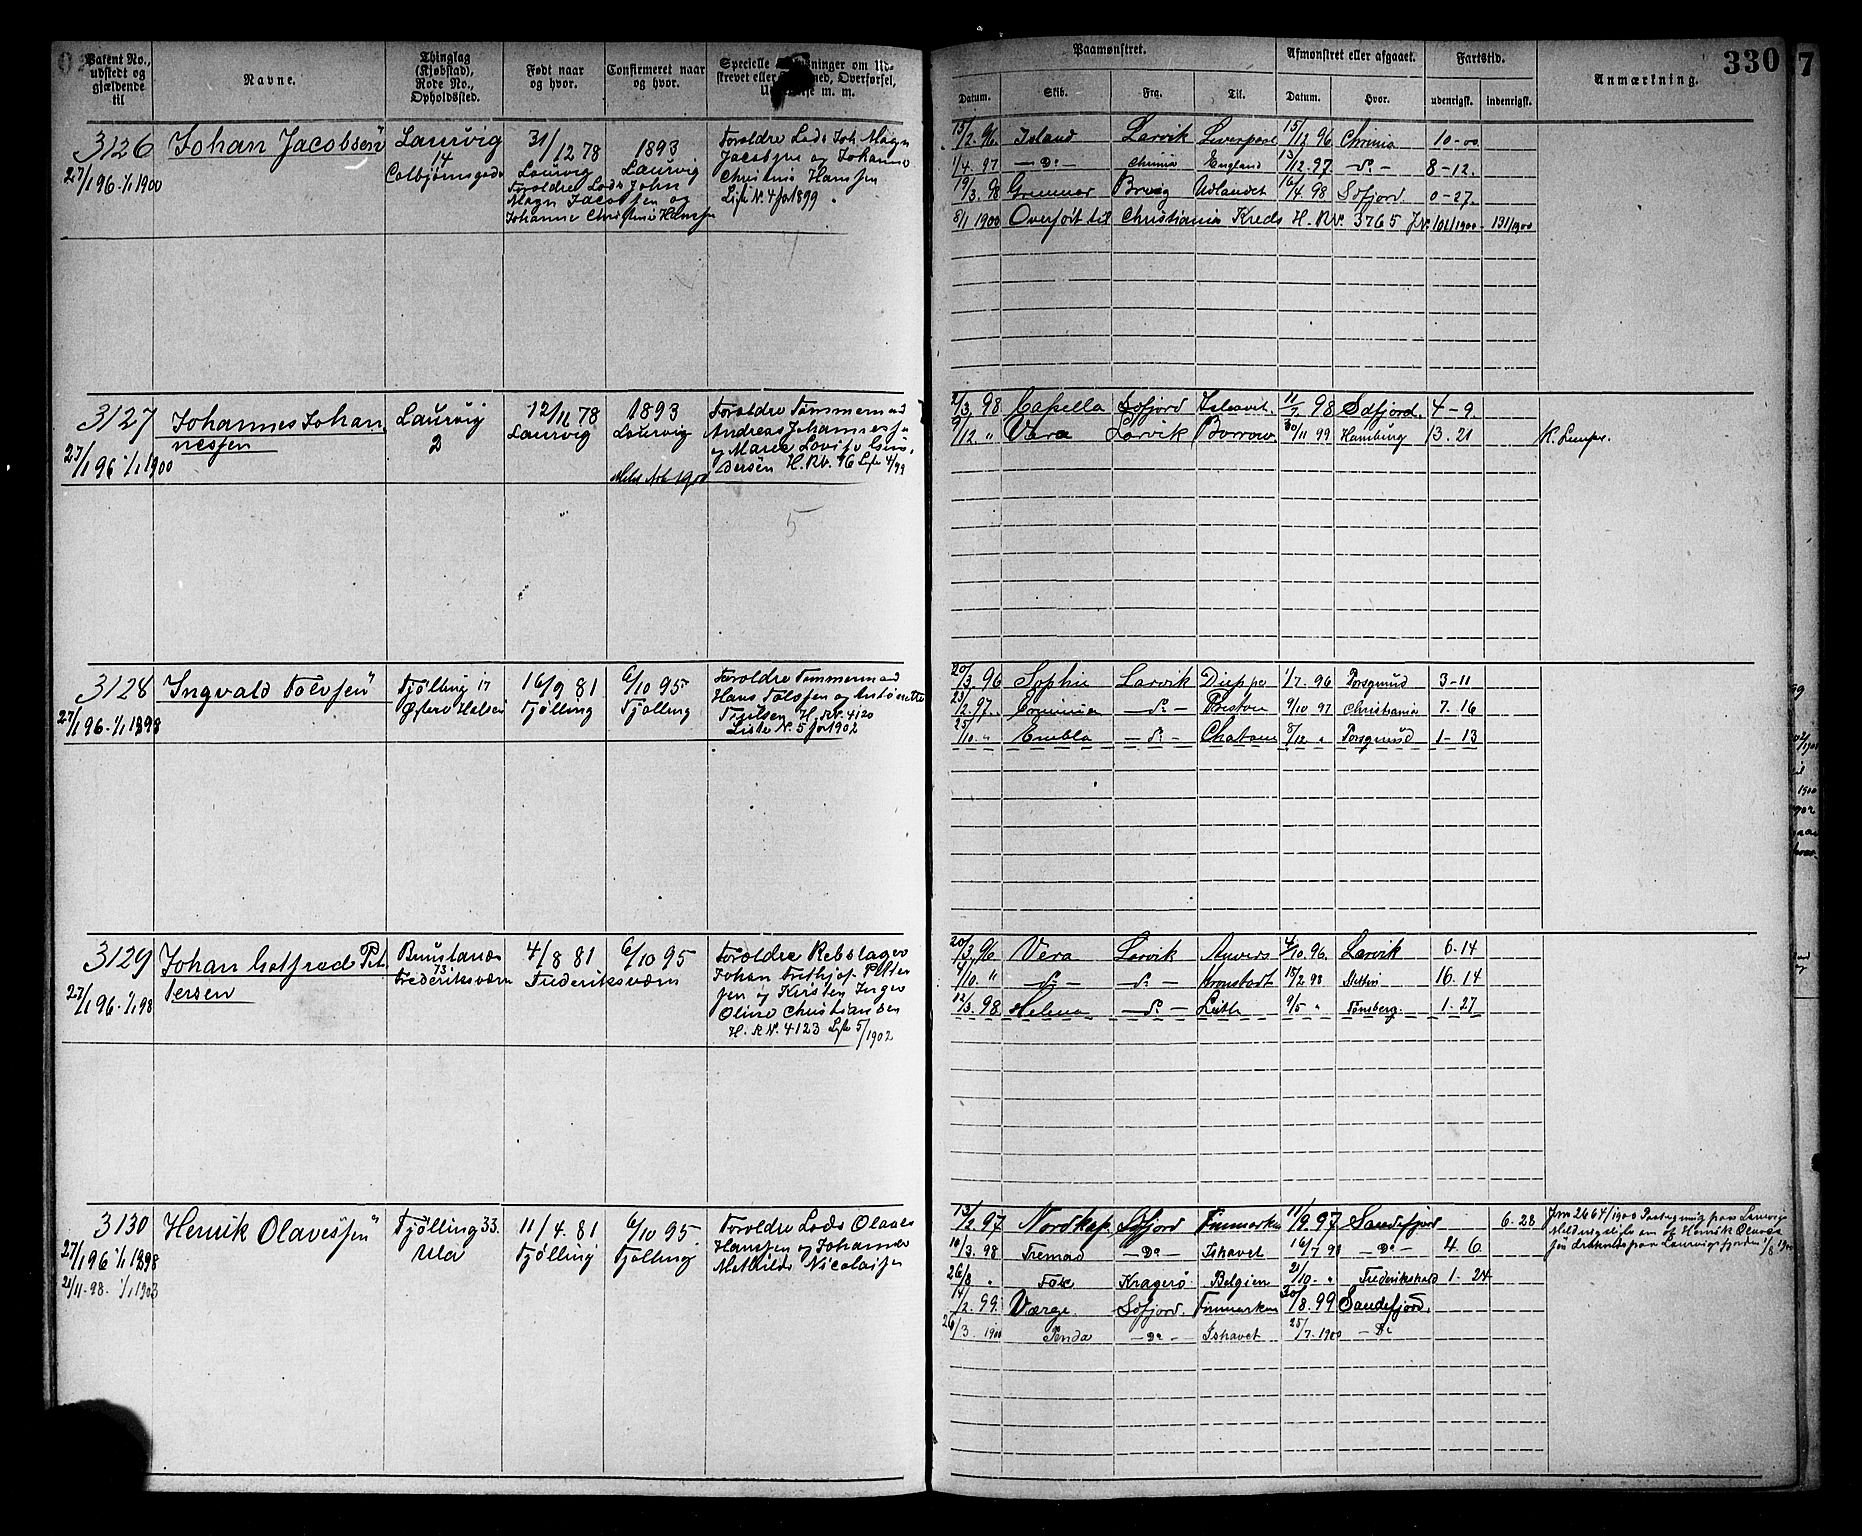 Patent No.,
udstedt og
gjældende
til
Navne.
Thinglag
(Kjøbstad),
Rode No.,
Opholdssted.
Født naar
og hvor.
Confirmeret naar
og hvor.
Specielle
om Ud-
skrevet eller
Overførsel,
m. m.
Paamønstret.
Afmønstret eller afgaaet.
Fartstid.
Anmærkning.
330
7
Datum.
Skib.
Fra.
Til.
Datum.
Hvor.
udenrigsk.
indenrigsk.
3126
27/1 96 1/1 1900
Johan Jacobsen
Laurvig
14
Colbjørnsgade
31/12 78
Laurvig
Forældre Lods John
Magn Jacobsen og
Johanne Christine Hansen
1893
Laurvig
Forældre Lods Joh. Magn
Jacobsen og Johanne
Christine Hansen
Liste N. 4 for 1899
15/2 96 Island Larvik Liverpool 15/12 96 Chrnia 10-00
1/4 97 -Do- Chrnia England 13/12 97 -do- 8-12.
19/3 98 Brevig Udlandet 16/4 98 Sdfjord 0-27.
8/1 1900 Overført til Christiania Kreds H. R No. 3765 J No. 101/1900 131/1900
3127
27/1 96 1/1 1900
Johannes Johan
nessen
Laurvig
2
12/11 78
Laurvig
1893
Laurvig
Forældre Tømmermand
Andreas Johannessen
og Maren Lovise Gun-
dersen H. R No. 96 Liste 4/99
2/3 98 Capella Sdfjord Ishavet. 11/7 98 Sdfjord. 4-9.
9/12 " Vera Larvik Borrow 30/11 99 Hamburg 13.21
5
3128
27/1 96. 1/1 1898
Ingvald Tolvsen
Tjølling 17
Østre Halsen
16/9 81
Tjølling
6/10 95
Tjølling
Forældre Tømmermand
Hans Tolfsen og Antonette
H. R N. 4120
Liste N. 5 for 1902
20/3 96 Sophie Larvik Dieppe 1/7 96 Porsgrund 3-11
23/2 97. -do- Preston 9/10 97 Christiania 7.16
25/10 " Embla -do- Chatam 8/12 " Porsgrund 1-13
3129
27/1 96. 1/1 98
Johan Gotfred Pet-
tersen
Brunlanæs
73
Frederiksværn
4/8 81
Frederiksværn
6/10 95
Forældre Rebslager
Johan Frithjof Petter
sen og Kirsten Inger
Oline Christiansen
H. R N. 4123 Liste 5/1902
20/3 96 Vera Larvik Anvers 4/10 96. Larvik 6.14
4/10. " -do- -do- Kronstadt 15/2 98 Stettin 16.14
12/3. 98 Helena -do- Leith 9/5 " Tønsberg. 1-27
3130
27/1 96 1/1 1898
21/11-98. 1/1 1903
Henrik Olavessen
Tjølling 33.
Ula
11/4. 81
Tjølling
6/10 95
Tjølling
Forældre Lods Olaves
Hanssen og Johanne
Mathilde Nicolaisen
13/2 97 Nordkap Sdfjord Finmarken 11/9. 97 Sandefjord 6-28
10/3. 98 Fremad -Do- Ishavet 16/7 98 -Do- 4 6.
26/8 " Fox Kragerø Belgien 21/10 - " Frederikshald 1-24
14/2. 99 Værge Sdfjord. Finmarken 30/8. 99 Sandefjord.
26/3. 1900 Penda -Do- Ishavet 25/7. 1900 -Do